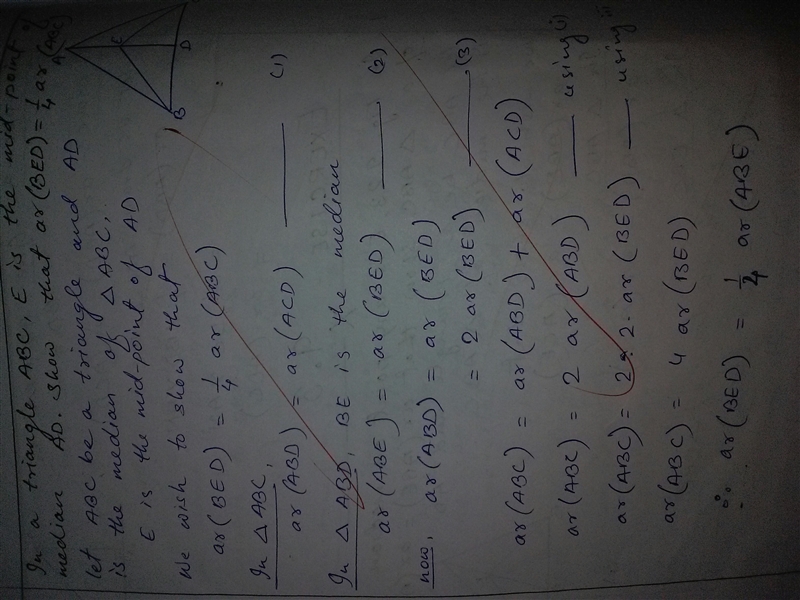 In a triangle ABC, E is the mid-point of
median AD. Show that ar(BED) = 1/4 ar(ABC)
Let ABC be a triangle and AD
is the median of △ABC,
E is the mid-point of AD
We wish to show that
ar(BED) = 1/4 ar(ABC)
A
E
D
B
In △ABC,
ar(ABD) = ar(ACD) ——— (1)
In △ABD, BE is the median
ar(ABE) = ar(BED) ——— (2)
now, ar(ABD) = ar(BED)
= 2 ar(BED) ——— (3)
ar(ABC) = ar(ABD) + ar(ACD)
ar(ABC) = 2 ar(ABD) —— using(i)
ar(ABC) = 2·2·ar(BED) —— using
ar(ABC) = 4 ar(BED)
∴ ar(BED) = 1/4 ar(ABE)